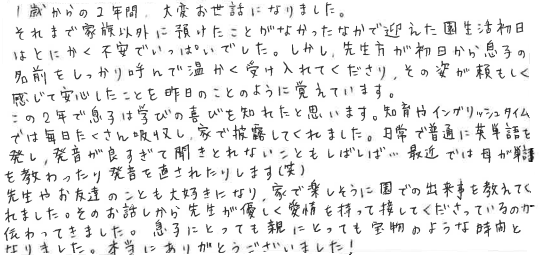 1歳からの2年間、大変お世話になりました。
それまで家族以外に預けたことがなかったなかで迎えた園生活初日
はとにかく不安でいっぱいでした。しかし、先生方が初日から息子の
名前をしっかり呼んで温かく受け入れてくださり、その姿が頼もしく
感じて安心したことを昨日のことのように覚えています。
この2年で息子は学びの喜びを知れたと思います。知育やイングリッシュタイム
では毎日たくさん吸収し、家で披露してくれました。日常で普通に英単語を
発し、発音が良すぎて聞きとれないこともしばしば…最近では母が単語
を教わったり発音を直されたりします(笑)
先生やお友達のことも大好きになり、家で楽しそうに園での出来事を教えてく
れました。そのお話しから先生が優しく愛情を持って接してくださっているのが
伝わってきました。息子にとっても親にとっても宝物のような時間と
なりました。本当にありがとうございました!